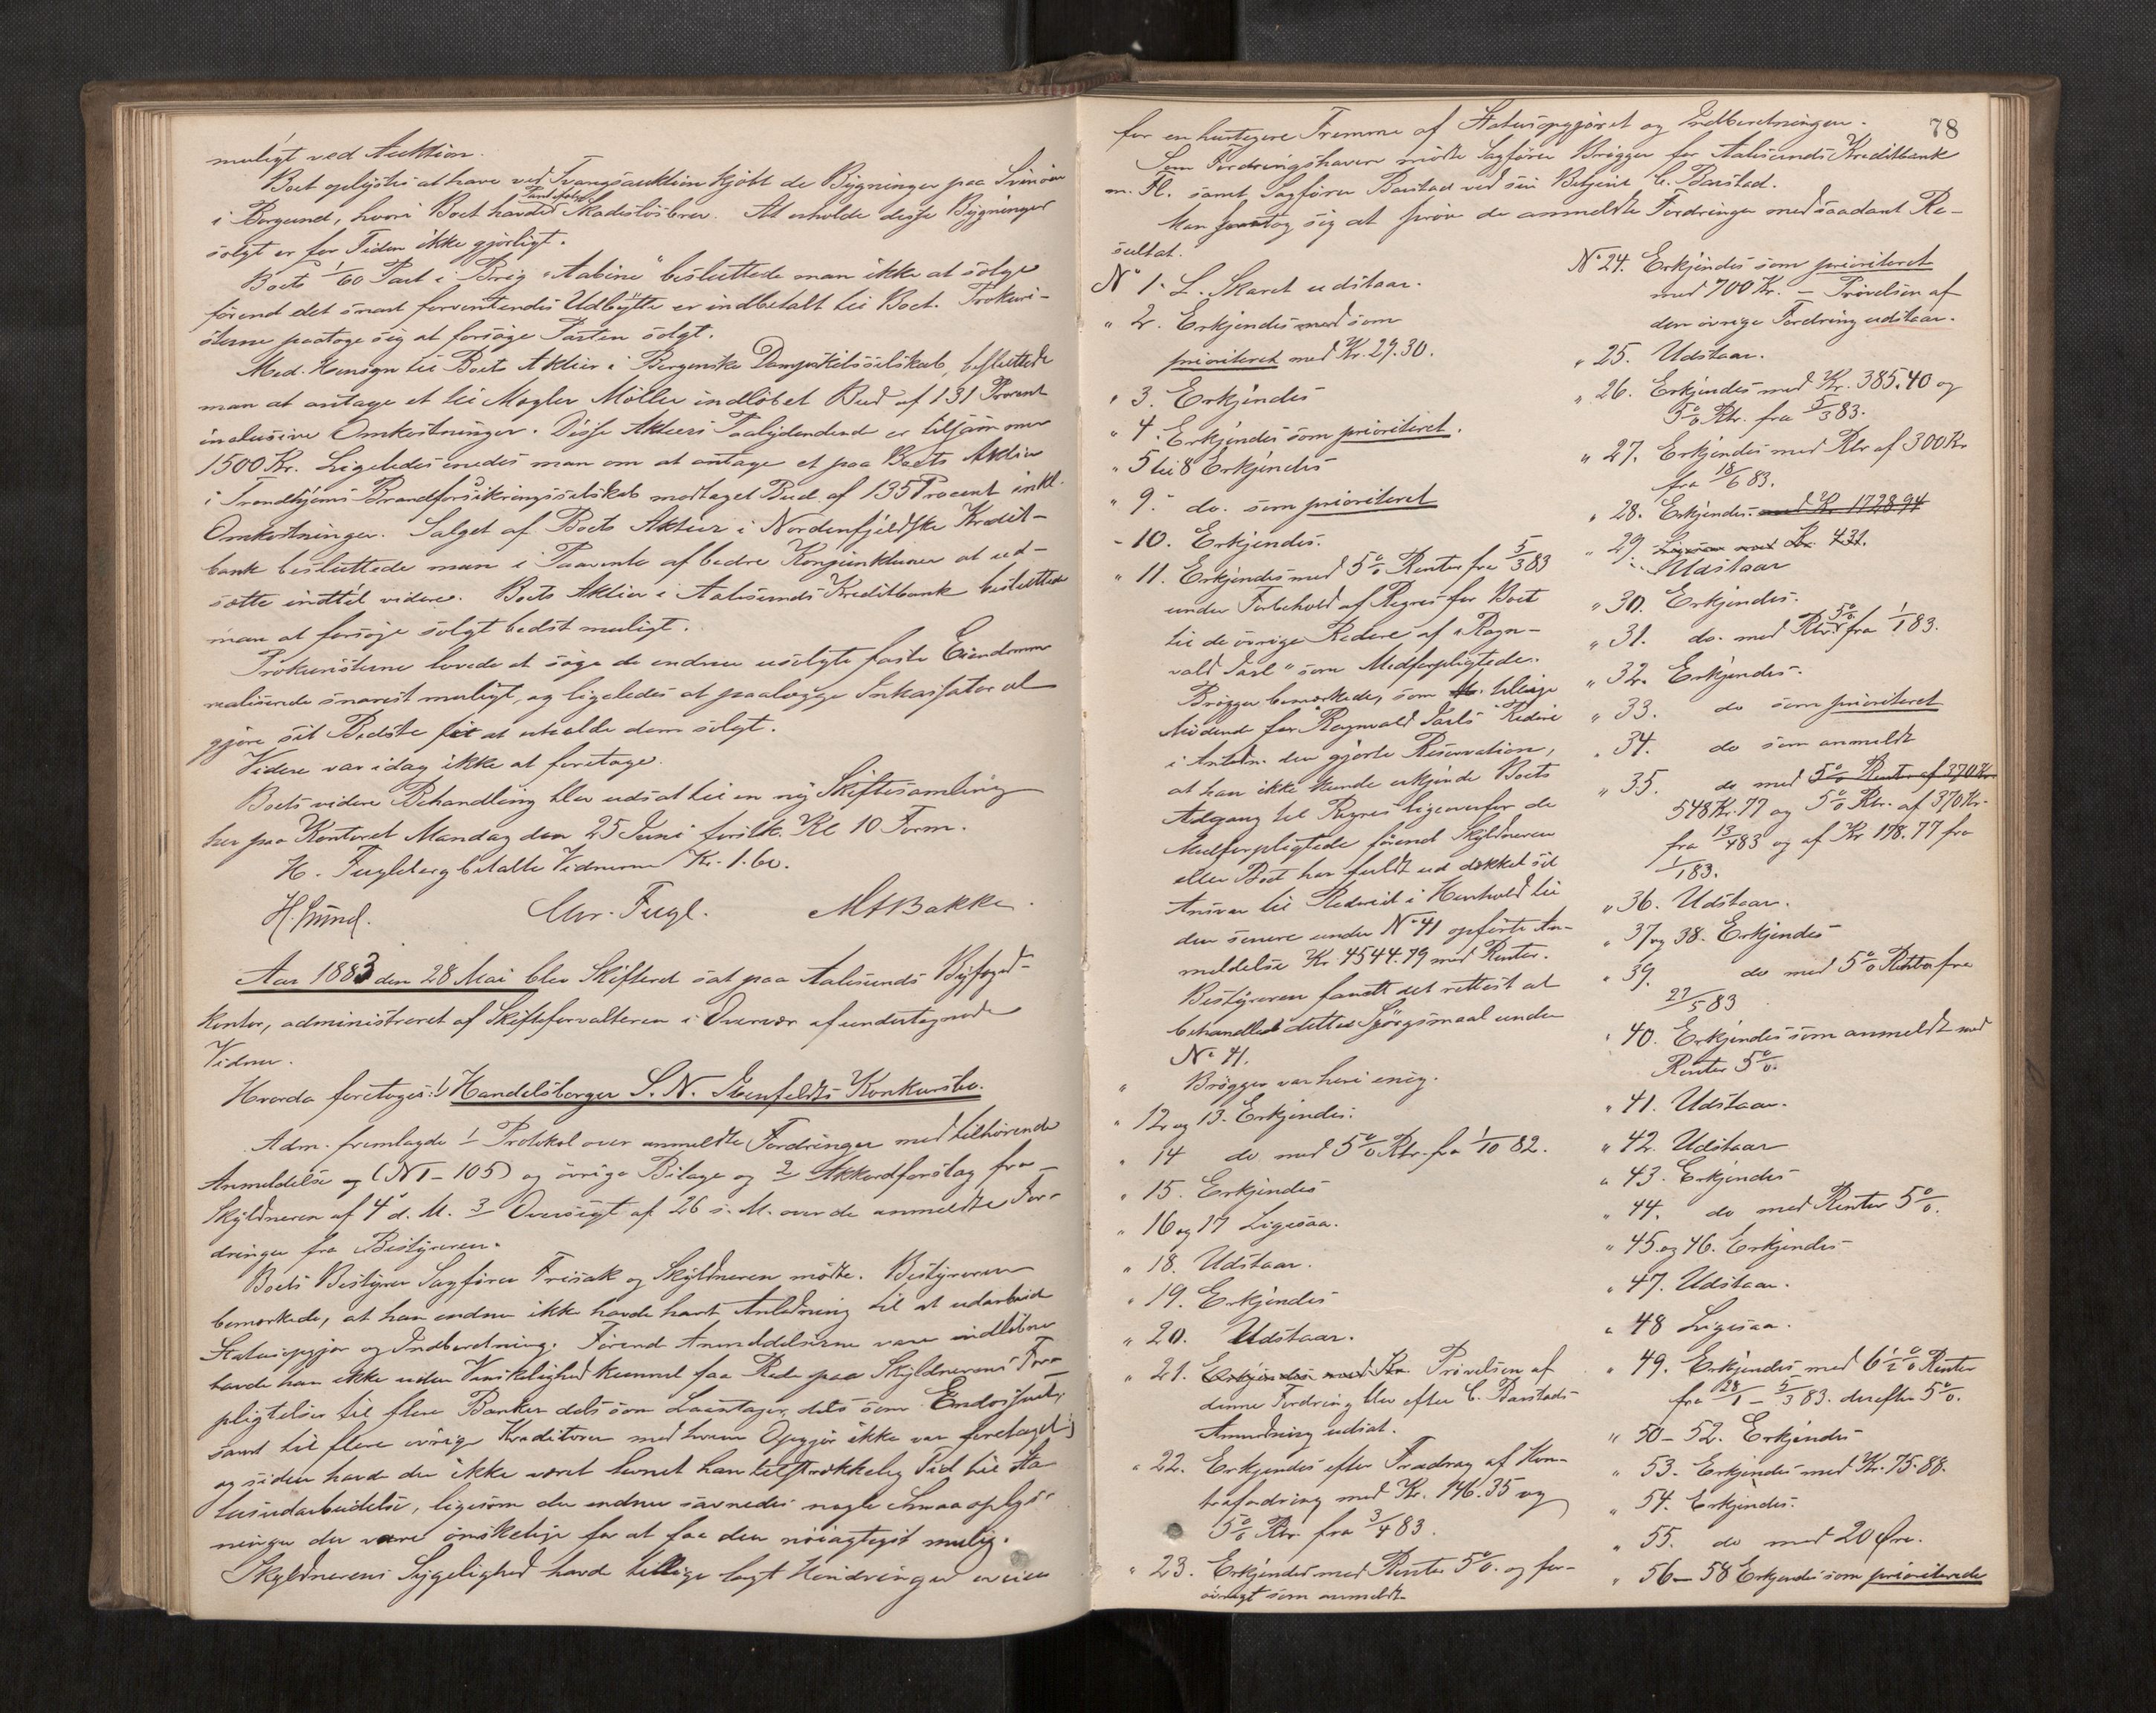 muligt ved Auktion.
Boet oplystes at have ved Tvangsauktion kjøbt de Bygninger paa Svinøen
i Borgund, hvori Boet havde Panteforskr. Skadesløsbrev. At erholde disse Bygninger
solgt er for Tiden ikke gjørligt.
Boets 1/60 Part i Brig "Aabine" besluttede man ikke at sælge
førend det snart forventendes Udbytte er indbetalt til Boet. Prokuri-
sterne paatoge sig at forsøge Parten solgt.
Med Hensyn til Boets Aktier i Bergenske Dampskibsselskab, besluttede
man at antage et til Mægler Møller indløbet Bud af 131 Procent
inclusive Omkostninger. Disse Aktiers Paalydendend er tilsammen
1500 Kr. Ligeledes enedes man om at antage et paa Boets Aktier
i Trondhjems Brandforsikringsselskab modtaget Bud af 135 Procent inkl.
Omkostninger. Salget af Boets Aktier i Nordenfjeldske Kredit-
bank besluttede man i Paavente af bedre Konjunkturer at ud-
sætte indtil videre. Boets Aktier i Aalesunds Kreditbank besluttede
man at forsøge solgt bedst muligt.
Prokuristerne lovede at søge de endnu usolgte faste Eiendomme
realiserede snarest muligt, og ligeledes at paalægge Inkassator at
gjøre sit Bedste for at erholde dem solgt.
Videre var idag ikke at foretage.
Boets videre Behandling blev udsat til en ny Skiftesamling
her paa Kontoret Mandag den 25 Juni førstk. Kl 10 Form.
H. Fugleberg betalte Vidnerne Kr. 1.60.
H. Lund. Chr. Fugl. MABakke.
Aar 1883 den 28 Mai blev Skifteret sat paa Aalesunds Byfoged-
kontor, administreret af Skifteforvalteren i Overvær af undertegnede
Vidner.
Hvorda foretoges: 1) Handelsborger S. N. Stenfeldts Konkursbo.
Adm. fremlagde 1/ Protokol over anmeldte Fordringer med tilhørende
Anmeldelse og (N 1 - 105) og øvrige Bilage og 2/ Akkordforslag fra
Skyldneren af 4 d. M. 3/ Oversigt af 26 s. M. over de anmeldte For-
dringer fra Bestyreren.
Boets Bestyrer Sagfører Frisak og Skyldneren mødte. Bestyreren
bemærkede, at han endnu ikke havde havt Anledning til at udarbeide
Statusopgjør og Indberetning. Førend Anmeldelserne vare indløbne
havde han ikke uden Vanskelighed kunnet faa Rede paa Skyldnerens For-
pligtelser til flere Banker dels som Laantager, dels som Endossent,
samt til flere øvrige Kreditorer med hvem Opgjør ikke var foretaget;
og siden havde der ikke været levnet ham tilstrækkelig Tid til Sta-
tusudarbeidelse, ligesom der endnu savnedes nogle Smaaoplys-
ninger der vare ønskelige for at faa den nøiagtigst mulig.
Skyldnerens Sygelighed havde tillige lagt Hindringer i veien
78
for en hurtigere Fremme af Statusopgjøret og Indberetningen.
Som Fordringshavere mødte Sagfører Brøgger for Aalesunds Kreditbank
m. Fl. samt Sagfører Barstad ved sin Betjent C. Barstad.
Man foretog sig at prøve de anmeldte Fordringer med saadant Re-
sultat.
No 1. L. Skaret udstaar.
" 2. Erkjendes med som
prioriteret med Kr. 29.30.
" 3. Erkjendes
" 4. Erkjendes som prioriteret.
" 5 til 8 Erkjendes
" 9. do. som prioriteret
- 10. Erkjendes.
" 11. Erkjendes med 5% Renter fra 5/3 83
under Forbehold af Regres for Boet
til de øvrige Redere af "Ragn-
vald Jarl" som Medforpligtede.
Brøgger bemærkede, som tillige
Mødende for "Ragnvald Jarls" Rederi
i Anledn. den gjorte Reservation,
at han ikke kunde erkjende Boets
Adgang til Regres ligeoverfor de
Medforpligtede førend Skyldneren
eller Boet har fuldt ud dækket sit
Ansvar til Rederiet i Henhold til
den senere under No 41 opførte An-
meldelse Kr. 4544.79 med Renter.
Bestyreren fandt det rettest at
behandled dette Spørgsmaal under
No 41.
" Brøgger var heri enig.
" 12 og 13. Erkjendes.
" 14 do med 5% Rtr. fra 1/10 82.
" 15. Erkjendes
" 16 og 17 Ligesaa.
" 18. Udstaar.
" 19. Erkjendes
" 20. Udstaar.
" 21. Erkjendes med Kr. Prøvelsen af
denne Fordring blev efter C. Barstads
Anmodning udsat.
" 22. Erkjendes efter Fradrag af Kon-
trafordring med Kr. 146.35 og
5% Rtr. fra 3/4 83.
" 23. Erkjendes med Renter 5% og for-
øvrigt som anmeldt
No 24. Erkjendes som prioriteret
med 700 Kr. - Prøvelsen af
den øvrige Fordring udstaar.
" 25. Udstaar.
" 26. Erkjendes med Kr. 385.40 og
5% Rtr. fra 5/3 83.
" 27. Erkjendes med Rtr af 300 Kr
fra 18/6 83.
" 28. Erkjendes. med Kr. 1728.94
" 29. Ligesaa med Kr. 431.
Udstaar
" 30. Erkjendes.
" 31. do. med Rtr 5% fra 1/1 83.
" 32. Erkjendes.
" 33. do som prioriteret
" 34. do som anmeldt
" 35. do med 5% Renter af 370 Kr.
548 Kr. 77 og 5% Rtr. af 370 Kr.
fra 13/4 83 og af Kr 178.77 fra
1/1 83.
" 36. Udstaar.
" 37 og 38. Erkjendes
" 39. do med 5% Renter fra
22/5 83
" 40. Erkjendes som anmeldt med
Renter 5%.
" 41. Udstaar.
" 42. Udstaar
" 43. Erkjendes
" 44. do med Renter 5%.
" 45. og 46. Erkjendes
" 47. Udstaar.
" 48 Ligesaa.
" 49. Erkjendes med 6½% Renter
fra 28/1 - 5/3 83. derefter 5%.
" 50 - 52. Erkjendes
" 53. Erkjendes med Kr. 75.88.
" 54. Erkjendes.
" 55. do med 20 Øre.
" 56 - 58 Erkjendes som prioriterede